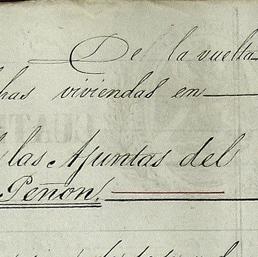 De la vuelta
has viviendas en
las Apuntas del
Peñon.